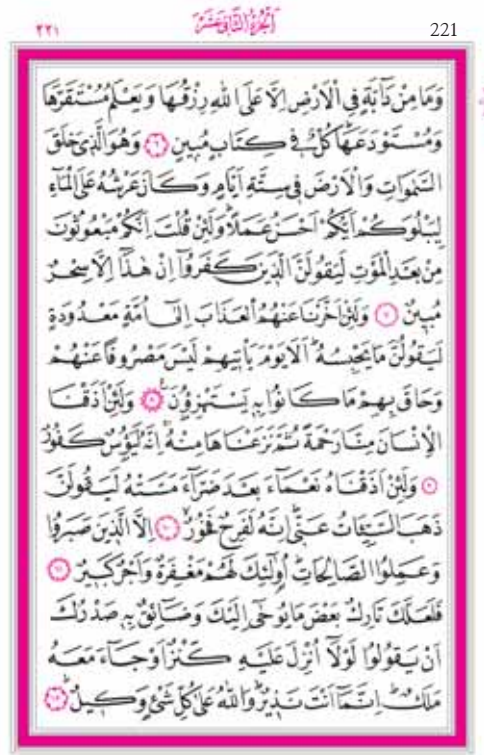 ٢٢١ اَلْجُزْءُ الثَّانِى عَشَرَ 221
وَمَا مِنْ دَٓابَّةٍ فِى الْاَرْضِ اِلَّا عَلَى اللّٰهِ رِزْقُهَا وَيَعْلَمُ مُسْتَقَرَّهَا
وَمُسْتَوْدَعَهَاۜ كُلٌّ فٖى كِتَابٍ مُبٖينٍ ﴿٦﴾ وَهُوَ الَّذٖى خَلَقَ
السَّمٰوَاتِ وَالْاَرْضَ فٖى سِتَّةِ اَيَّامٍ وَكَانَ عَرْشُهُ عَلَى الْمَٓاءِ
لِيَبْلُوَكُمْ اَيُّكُمْ اَحْسَنُ عَمَلاًۜ وَلَئِنْ قُلْتَ اِنَّكُمْ مَبْعُوثُونَ
مِنْ بَعْدِ الْمَوْتِ لَيَقُولَنَّ الَّذٖينَ كَفَرُٓوا اِنْ هٰذَٓا اِلَّا سِحْرٌ
مُبٖينٌ ﴿٧﴾ وَلَئِنْ اَخَّرْنَا عَنْهُمُ الْعَذَابَ اِلٰٓى اُمَّةٍ مَعْدُودَةٍ
لَيَقُولُنَّ مَا يَحْبِسُهُۜ اَلَا يَوْمَ يَأْتٖيهِمْ لَيْسَ مَصْرُوفًا عَنْهُمْ
وَحَاقَ بِهِمْ مَا كَانُوا بِهٖ يَسْتَهْزِؤُنَ ﴿٨﴾ وَلَئِنْ اَذَقْنَا
الْاِنْسَانَ مِنَّا رَحْمَةً ثُمَّ نَزَعْنَاهَا مِنْهُۚ اِنَّهُ لَيَؤُسٌ كَفُورٌ
﴿٩﴾ وَلَئِنْ اَذَقْنَاهُ نَعْمَٓاءَ بَعْدَ ضَرَّٓاءَ مَسَّتْهُ لَيَقُولَنَّ
ذَهَبَ السَّيِّـَٔاتُ عَنّٖىۜ اِنَّهُ لَفَرِحٌ فَخُورٌ ﴿١٠﴾ اِلَّا الَّذٖينَ صَبَرُوا
وَعَمِلُوا الصَّالِحَاتِۜ اُو۬لٰٓئِكَ لَهُمْ مَغْفِرَةٌ وَاَجْرٌ كَبٖيرٌ ﴿١١﴾
فَلَعَلَّكَ تَارِكٌ بَعْضَ مَا يُوحٰٓى اِلَيْكَ وَضَٓائِقٌ بِهٖ صَدْرُكَ
اَنْ يَقُولُوا لَوْلَٓا اُنْزِلَ عَلَيْهِ كَنْزٌ اَوْ جَٓاءَ مَعَهُ
مَلَكٌۜ اِنَّمَٓا اَنْتَ نَذٖيرٌۜ وَاللّٰهُ عَلٰى كُلِّ شَىْءٍ وَكٖيلٌۜ ﴿١٢﴾